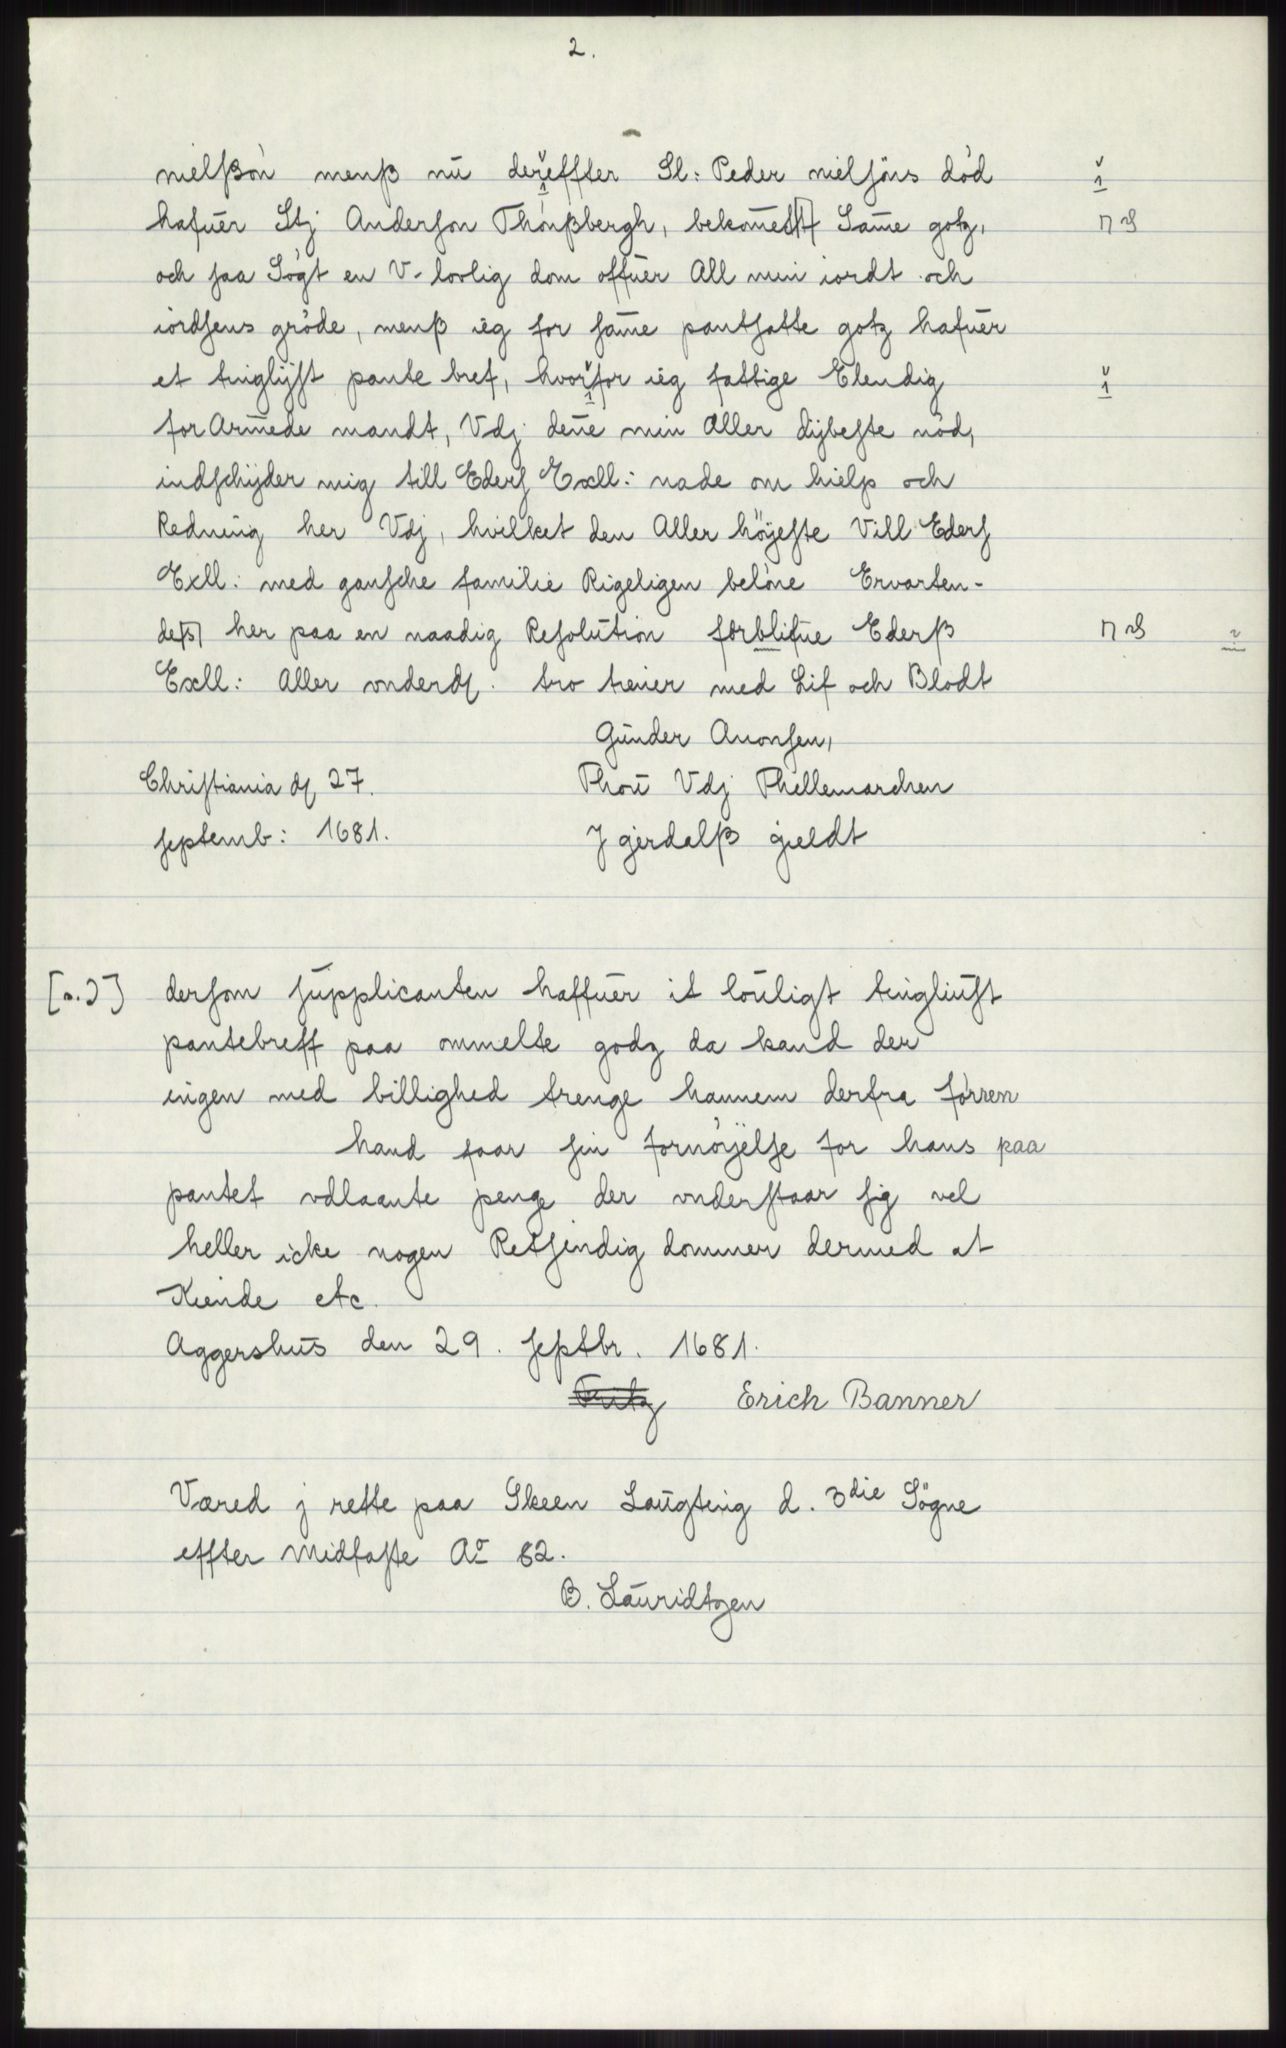 2.
nielßön menß nu dereffter Sl: Peder nielsöns död
hafuer Stj Anderson Thonßbergh, bekomett Same gotz,
och saa Sögt en V-lovlig dom offuer All min iordt och
iordsens gröde, menß ieg for same pantsatte gotz hafuer
et tinglyst pante bref, hvorfor ieg fattige Elendig
for Armede mandt, Vdj dene min Aller dybeste nöd,
indschyder mig till Eders Exll: nade om hielp och
Redning her Vdj, hvilket den Aller höyeste Vill Eders
Exll: med gansche familie Rigeligen belöne Ervarten-
de[s] her paa en naadig Resolution forblifue Ederß
Exll: Aller vnderd. tro tiener med Lif och Blodt
Gunder Auonsen,
Christiania d 27. Thou Vdj Thellemarchen
septemb: 1681. J gierdalß gieldt
dersom supplicanten haffuer it louligt tingliust
pantebreff paa ommelte godz da kand der
ingen med billighed trenge hannem derfra förren
hand faar sin fornöyelse for hans paa
pantet vdlaante penge der vnderstaar sig vel
heller icke nogen Retsindig dommer dermed at
Kiende etc.
Aggershus den 29. septbr. 1681.
Fritz Erich Banner
Væred j rette paa Skeen Laugting d. 3die Sögne
effter Midfaste Ao 82.
B. Lauridtzen